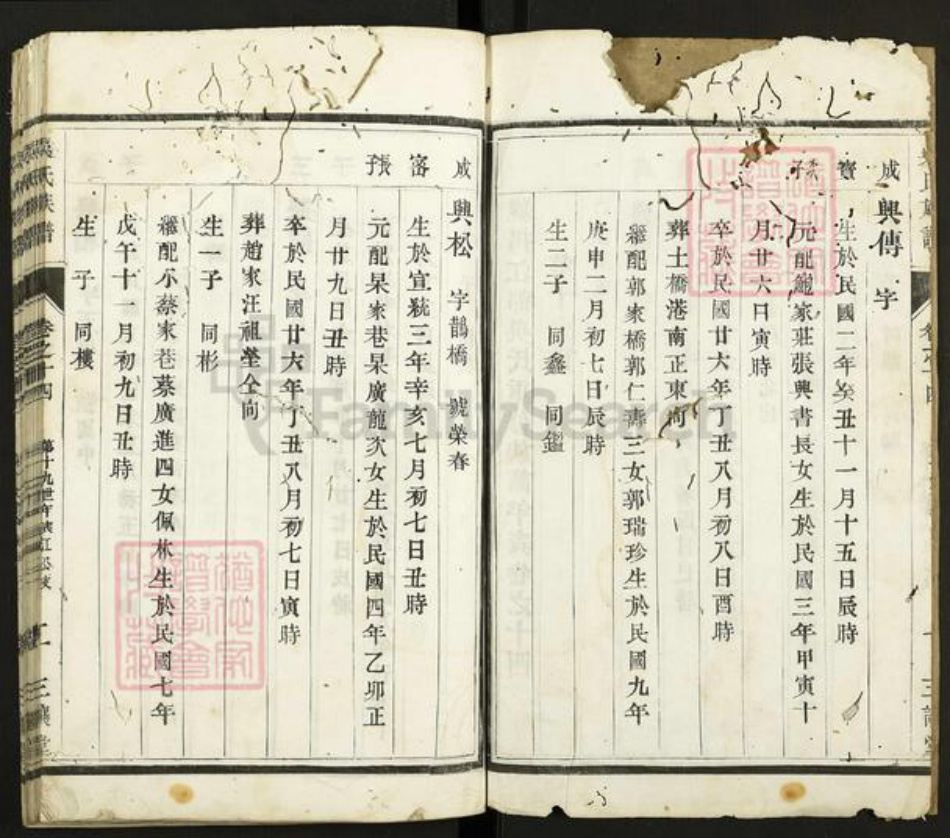 成 興傳 字
寳 生於民國二年癸丑十一月十五日辰時
子 元配鮑家莊張興書長女生於民國三年甲寅十
月廿六日寅時
卒於民國廿六年丁丑八月初八日酉時
葬土橋港南正東向
繼配郭家橋郭仁壽三女郭瑞珍生於民國九年
庚申二月初七日辰時
生二子 同鑫 同鑑
成 興松 字鵲橋 號榮春
容 生於宣統三年辛亥七月初七日丑時
張子 元配杲家巷杲廣龍次女生於民國四年乙卯正
月廿九日丑時
卒於民國廿六年丁丑八月初七日寅時
葬趙家汪祖塋仝向
生一子 同彬
繼配小蔡家巷蔡廣進四女佩林生於民國七年
戊午十一月初九日丑時
生 子 同樓
氏族譜 卷之十四 第十九世 三讓堂
FamilySearch